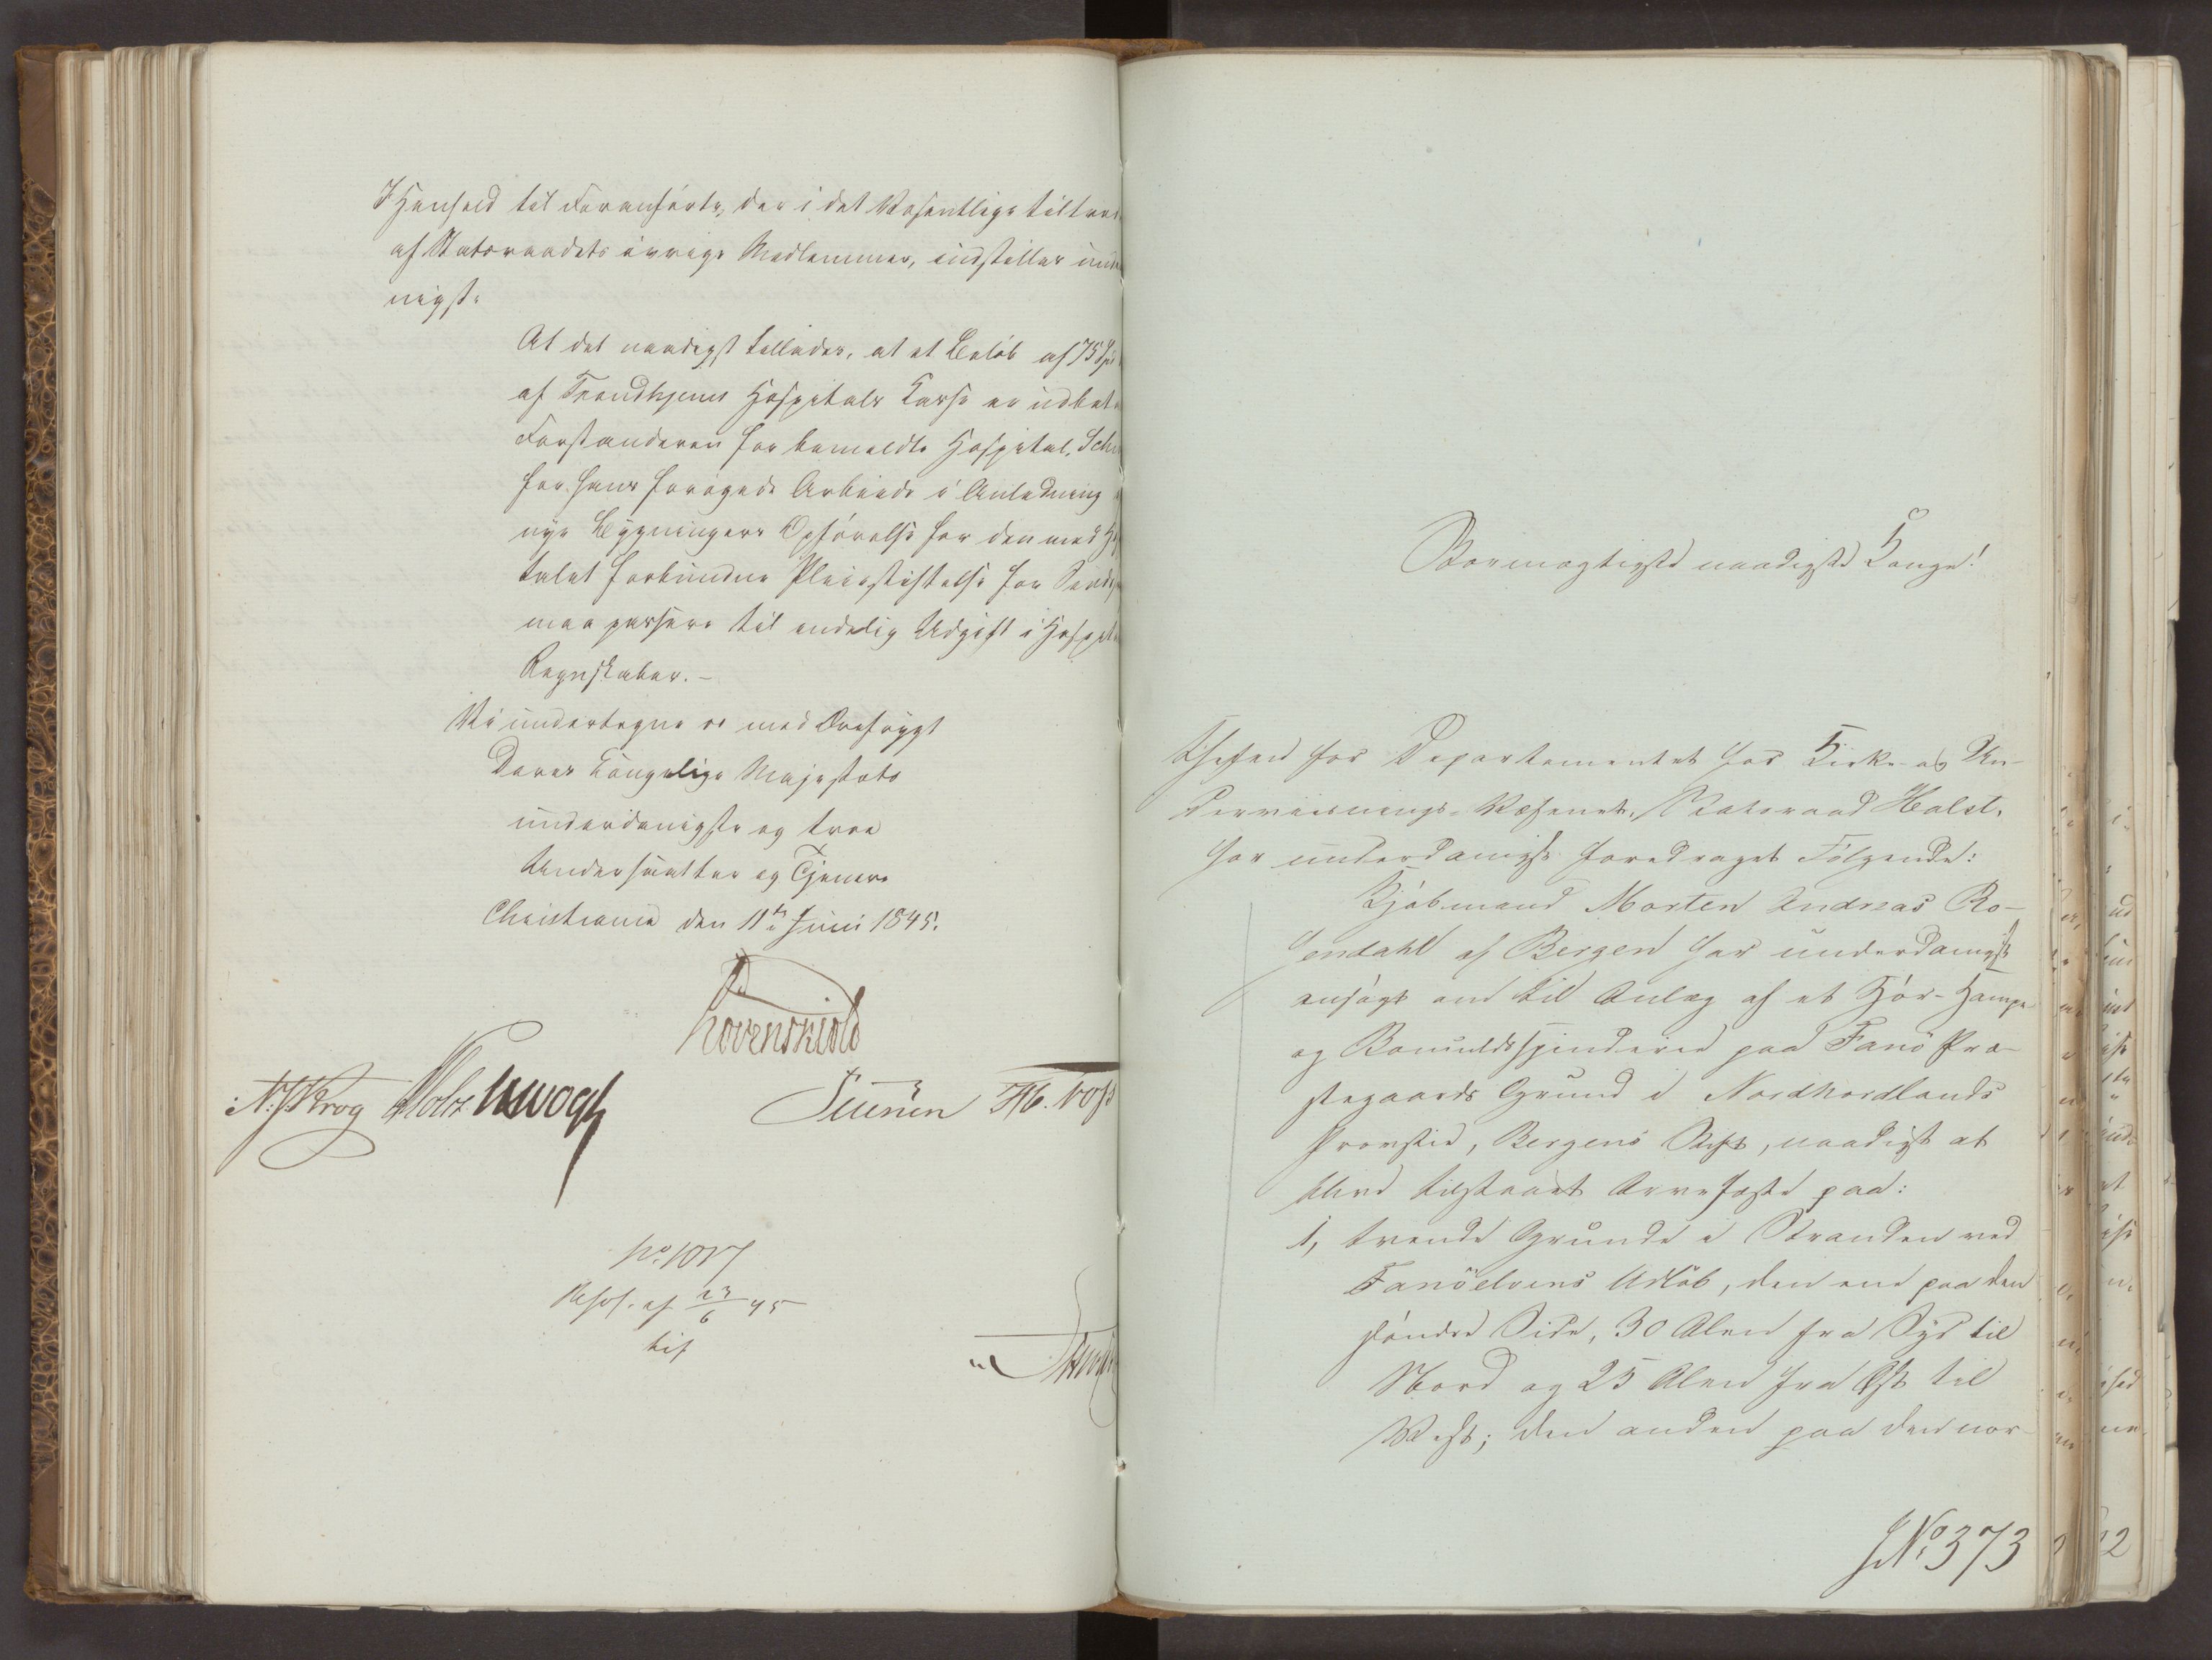 I Henhold til Foranførte, der i det Væsentlige tiltræ
af Statsraadets øvrige Medlemmer, indstilles unde
nigst:
At det naadigst tillades, at et Beløb af 75 Spd
af Trondhjems Hospitals Casse er udbet
Forstanderen for bemeldte Hospital, Sch
for hans forøgede Arbeide i Anledning
nye Bygningers Opførelse for den med H
talet forbundne Pleiestiftelse for Sinds
maa passere til endelig Udgift i Hospit
Regnskaber. –
Vi undertegne os med Dybsøgt
Deres Kongelige Majestæts
underdanigste og troe
Undersaatter og Tjenere
Christiania den 11te Juni 1845.
Løvenskiold
N. J. Krog Holst UMotzf Petersen JH. Vogt
No. 1017
Resol. af 23/6 45
bif
Stormægtigste naadigste Konge!
Chefen for Departementet for Kirke- og Un-
derviisnings-Væsenet, Statsraad Holst,
har underdanigst foredraget Følgende:
Kjøbmand Morten Andreas Ro-
sendahl af Bergen har underdanigst
ansøgt om til Anlæg af et Hør-Hampe
og Bomuldsspinderie paa Fanø Præ-
stegaards Grund i Nordhordlands
Provstie, Bergens Stift, naadigst at
blive tilstaaet Arvefæste paa:
1, tvende Grunde i Stranden ved
Fanøelvens Udløb, den ene paa den
søndre Side, 30 Alen fra Syd til
Nord og 25 Alen fra Øst til
Vest; den anden paa den nor-
JNo. 373